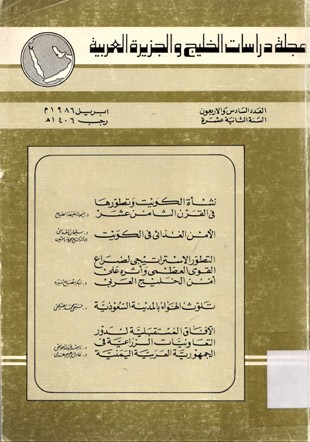 مجلة دراسات الخليج والجزيرة العربية
العدد السادس والاربعون
السنة الثانية عشرة
ابريل ١٩٨٦ م
رجب ١٤٠٦ هـ
نشأة الكويت وتطورها
في القرن الثامن عشر
الأمن الغذائي في الكويت
التطور الاستراتيجي لصراع
القوى العظمى وأثره على
أمن الخليج العربي
تلوث الهواء بالمدينة السعودية
الآفاق المستقبلية لدور
التعاونيات الزراعية في
الجمهورية العربية اليمنية